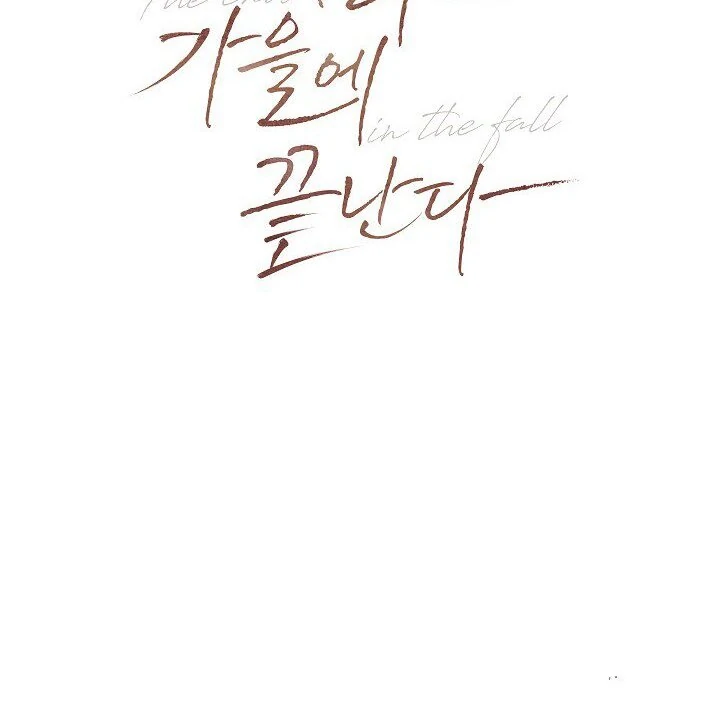 가을에
in the fall
끝난다